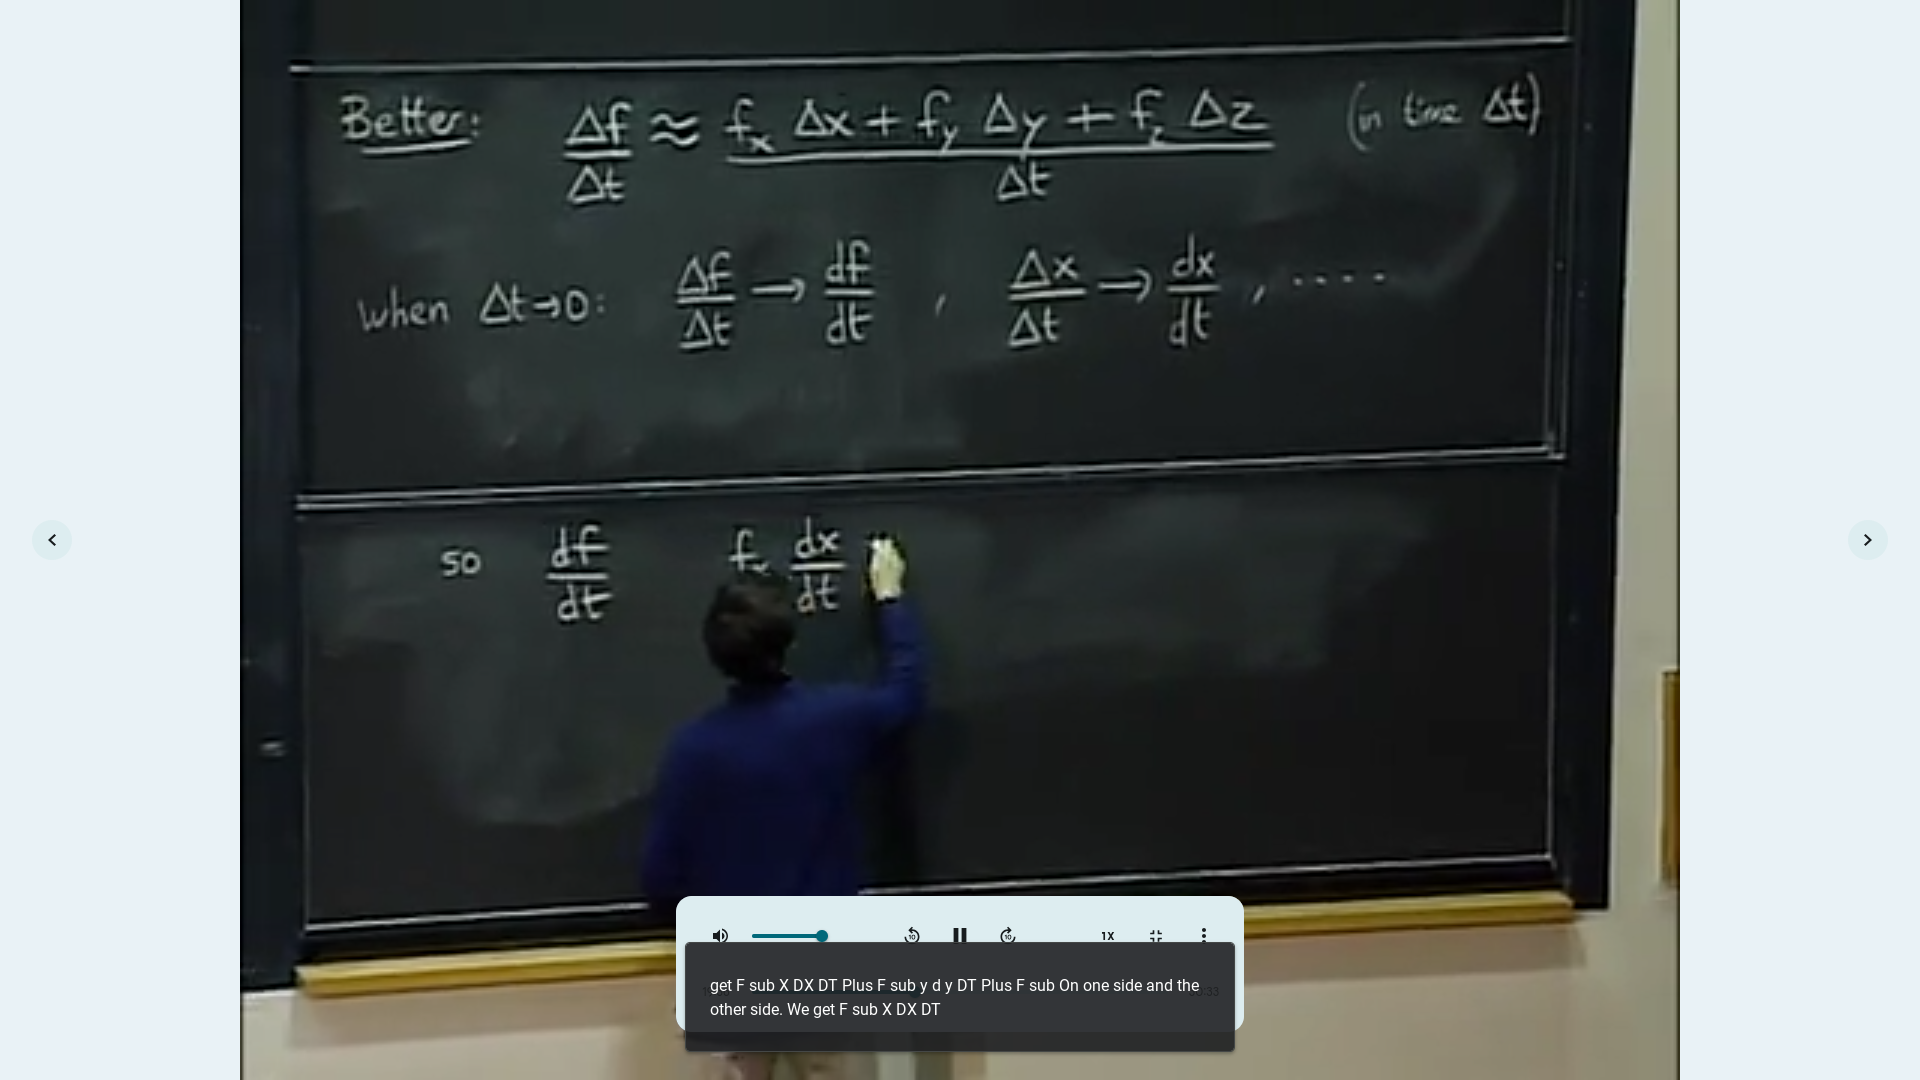 Better: Δf/Δt ≈ (f_x Δx + f_y Δy + f_z Δz)/Δt (in time Δt)
when Δt→0: Δf/Δt → df/dt , Δx/Δt → dx/dt , ....
so df/dt f_x dx/dt
1X
get F sub X DX DT Plus F sub y d y DT Plus F sub On one side and the
other side. We get F sub X DX DT